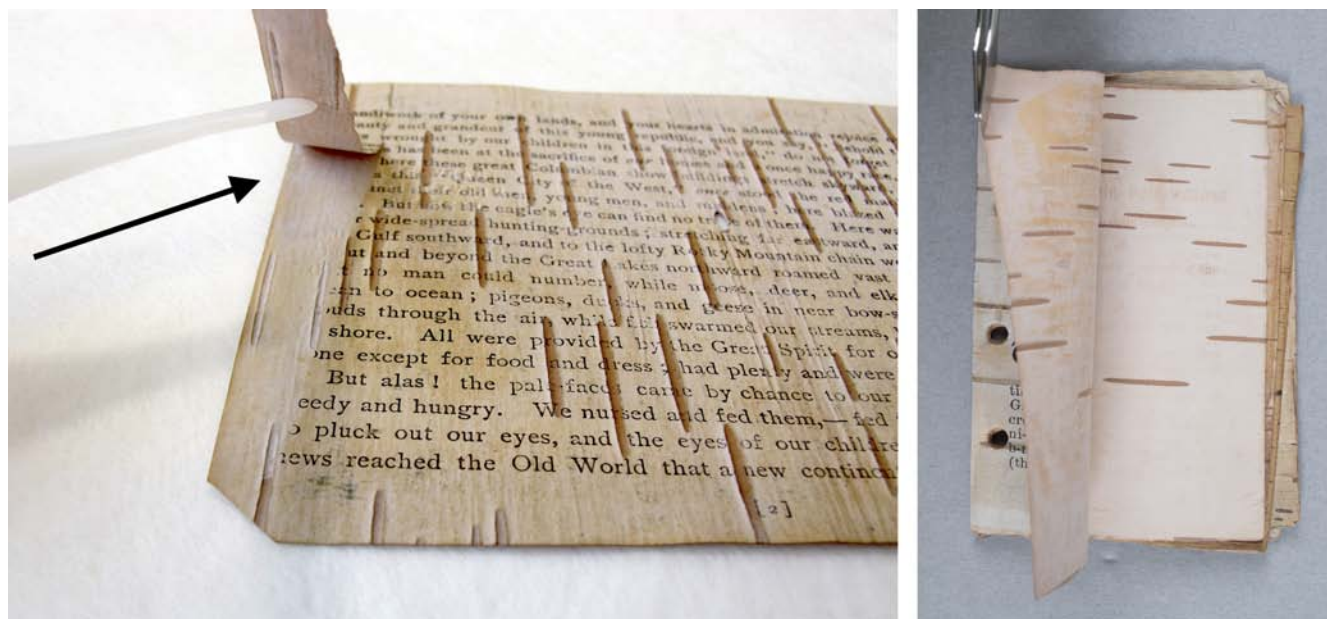 lands, and your hearts in admiration rejoice
beauty and grandeur of this young republic, and you say, "behold
wrought by our children in this foreign land," do not forget
has been at the sacrifice of our homes and a once happy race.
here these great Columbian show-buildings stretch skyward,
this "Queen City of the West," once stood the red man's
met their old men, young men, and maidens; here blazed
But now the eagle's eye can find no trace of them. Here was
wide-spread hunting-grounds; stretching far eastward, and
Gulf southward, and to the lofty Rocky Mountain chain we
ut and beyond the Great Lakes northward roamed vast
no man could number, while moose, deer, and elk
an to ocean; pigeons, ducks, and geese in near bow-s
uds through the air, while fish swarmed our streams,
shore. All were provided by the Great Spirit for o
one except for food and dress; had plenty and were
But alas! the pale-faces came by chance to our
eedy and hungry. We nursed and fed them,—fed
o pluck out our eyes, and the eyes of our childre
news reached the Old World that a new continen
[2]
ti
G
cr
ni-
b-r
(th